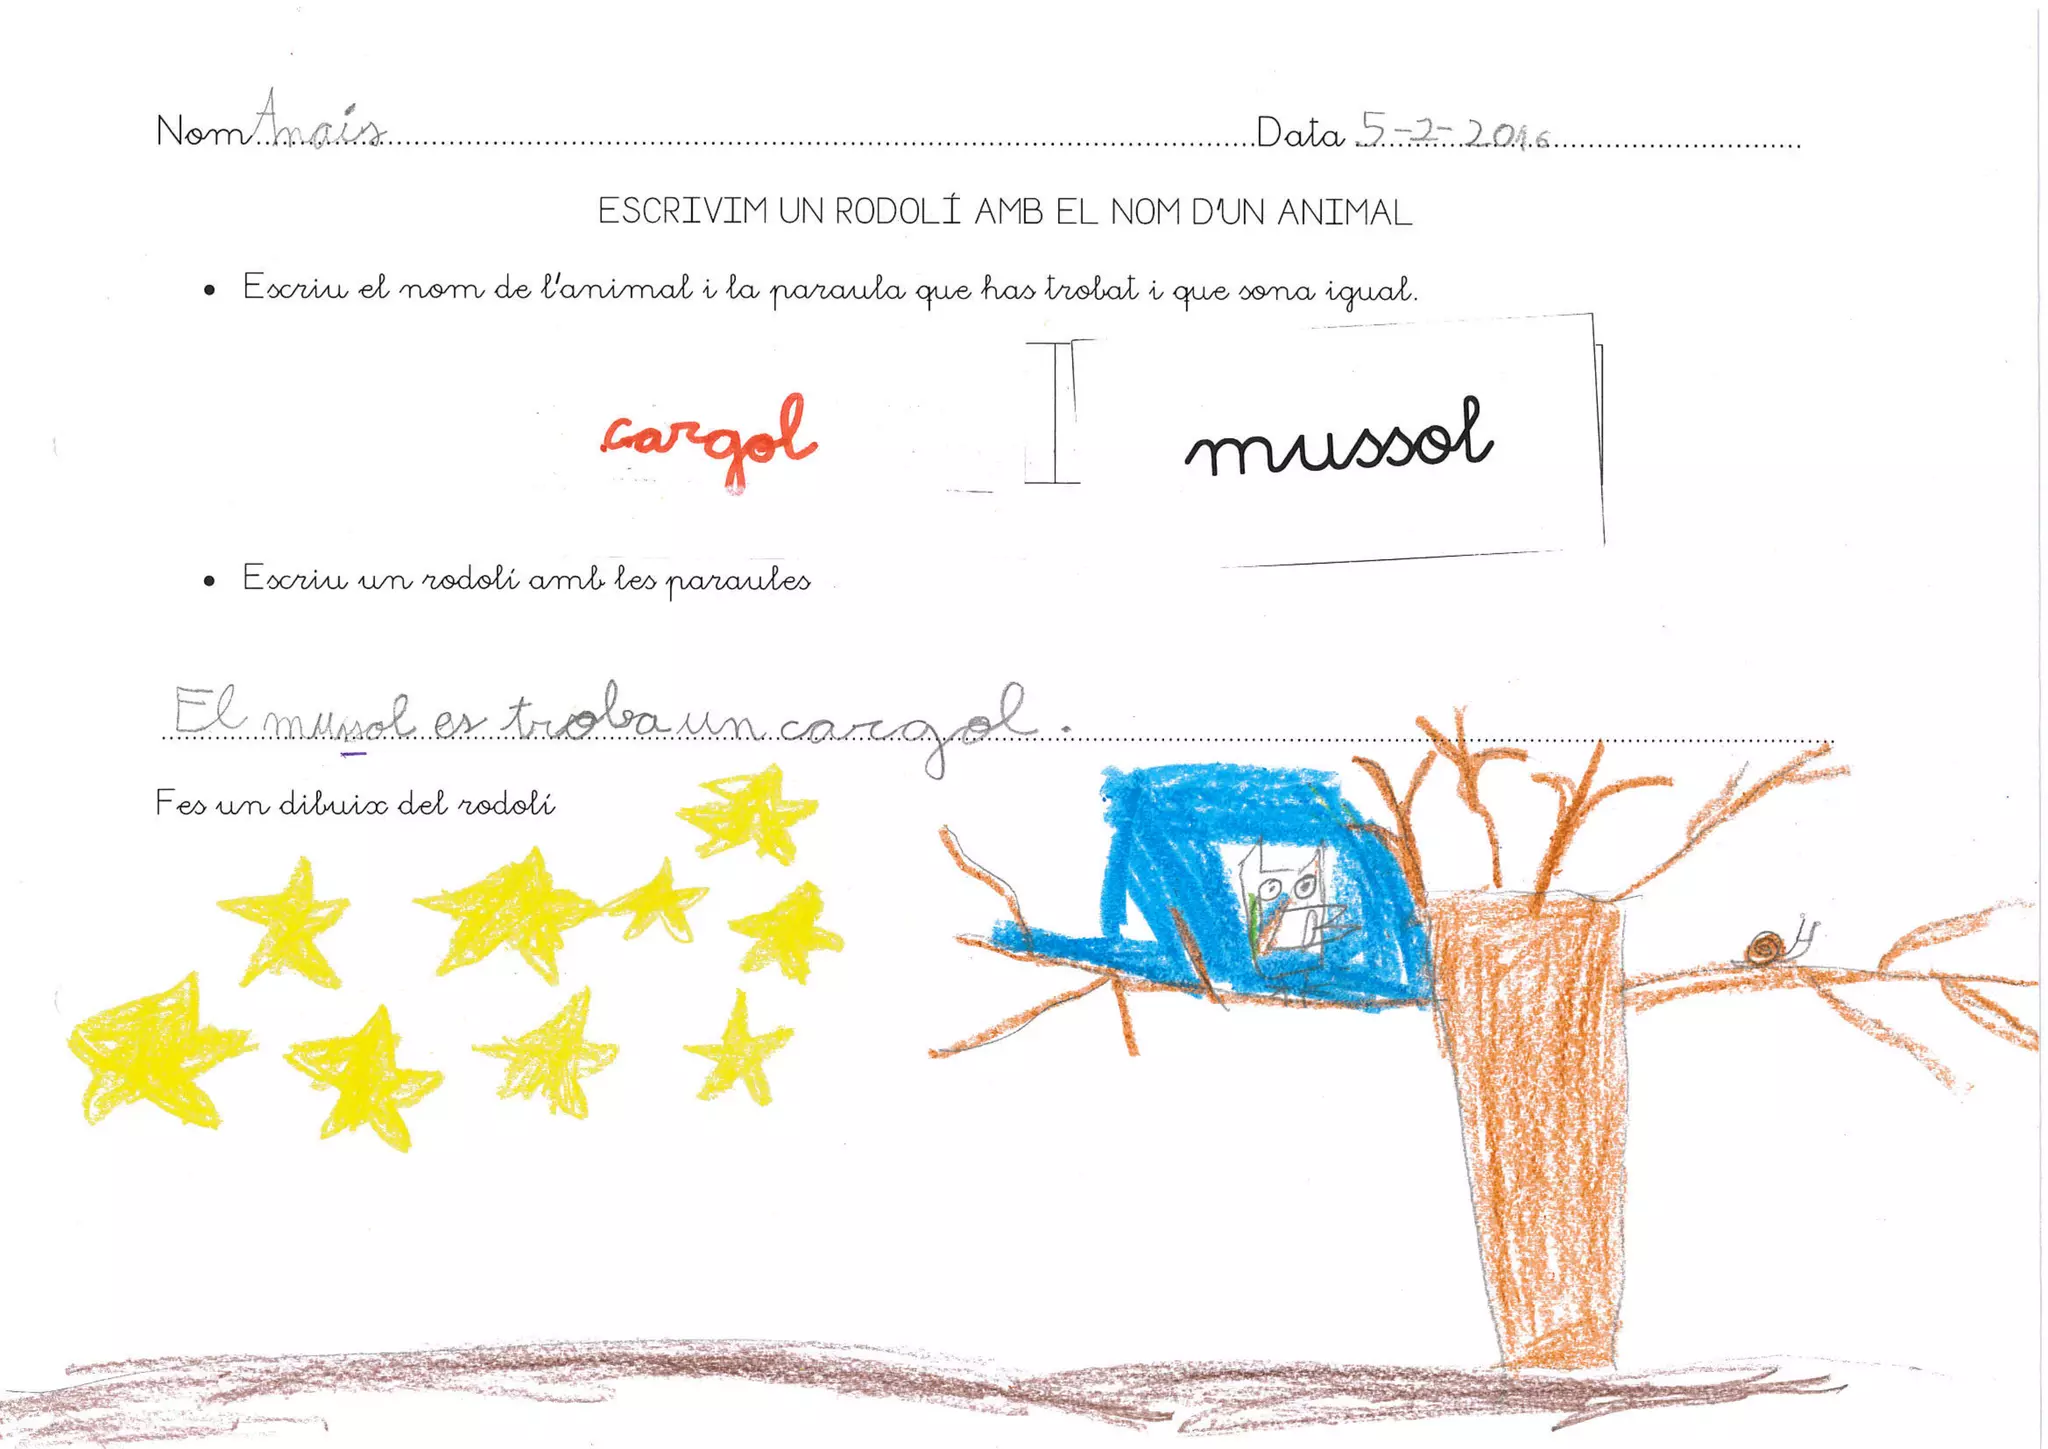 Nom Anaïs Data 5-2-2016
ESCRIVIM UN RODOLÍ AMB EL NOM D'UN ANIMAL
• Escriu el nom de l'animal i la paraula que has trobat i que sona igual.
cargol I mussol
• Escriu un rodolí amb les paraules
El mussol es troba un cargol.
Fes un dibuix del rodolí